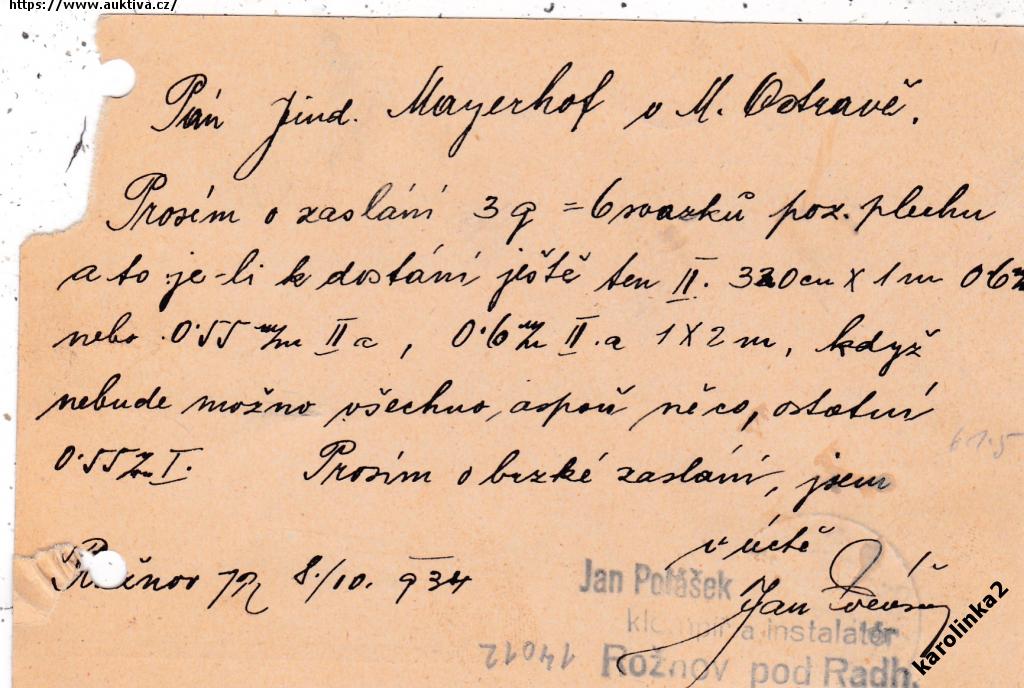 https://www.auktiva.cz/
Pán Jind. Mayerhof v M. Ostravě.
Prosím o zaslání 3 q = 6 svazků poz. plechu
a to je-li k dostání ještě ten II. 320cm X 1 m 0·6 m/m
nebo 0·55 m/m II a, 0·6 m/m II. a 1 X 2 m, když
nebude možno všechno, aspoň něco, ostatní
0·55 m/m I. Prosím o brzké zaslání, jsem
v úctě
Rožnov p/R 8./10. 934
Jan
Jan Polášek
klempíř a instalatér
Rožnov pod Radh.
14012
61.5
karolinka2